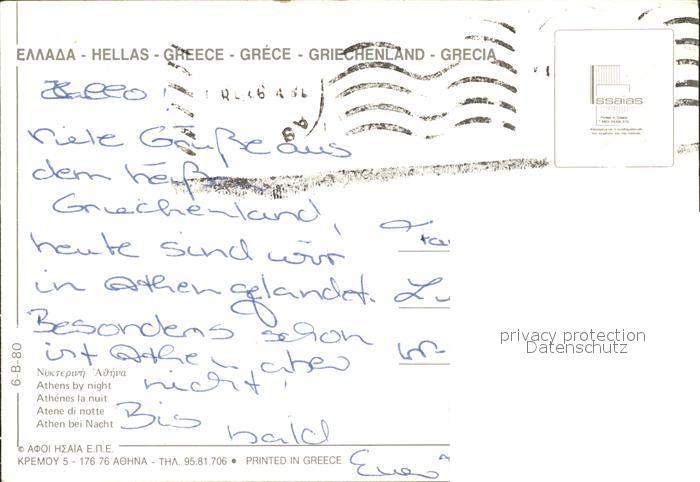 ΕΛΛΑΔΑ - HELLAS - GREECE - GRÉCE - GRIECHENLAND - GRECIA
Hallo!
viele Grüße aus
dem heiß
Griechenland,
heute sind wir
in Athen gelandet.
Besonders schön
ist Athen aber
nicht!
Bis
bald
Νυκτερινή Ἀθήνα
Athens by night
Athénes la nuit
Atene di notte
Athen bei Nacht
6-B-80
© ΑΦΟΙ ΗΣΑΪΑ Ε.Π.Ε.
ΚΡΕΜΟΥ 5 - 176 76 ΑΘΗΝΑ - ΤΗΛ. 95.81.706 • PRINTED IN GREECE
ssaias
privacy protection
Datenschutz